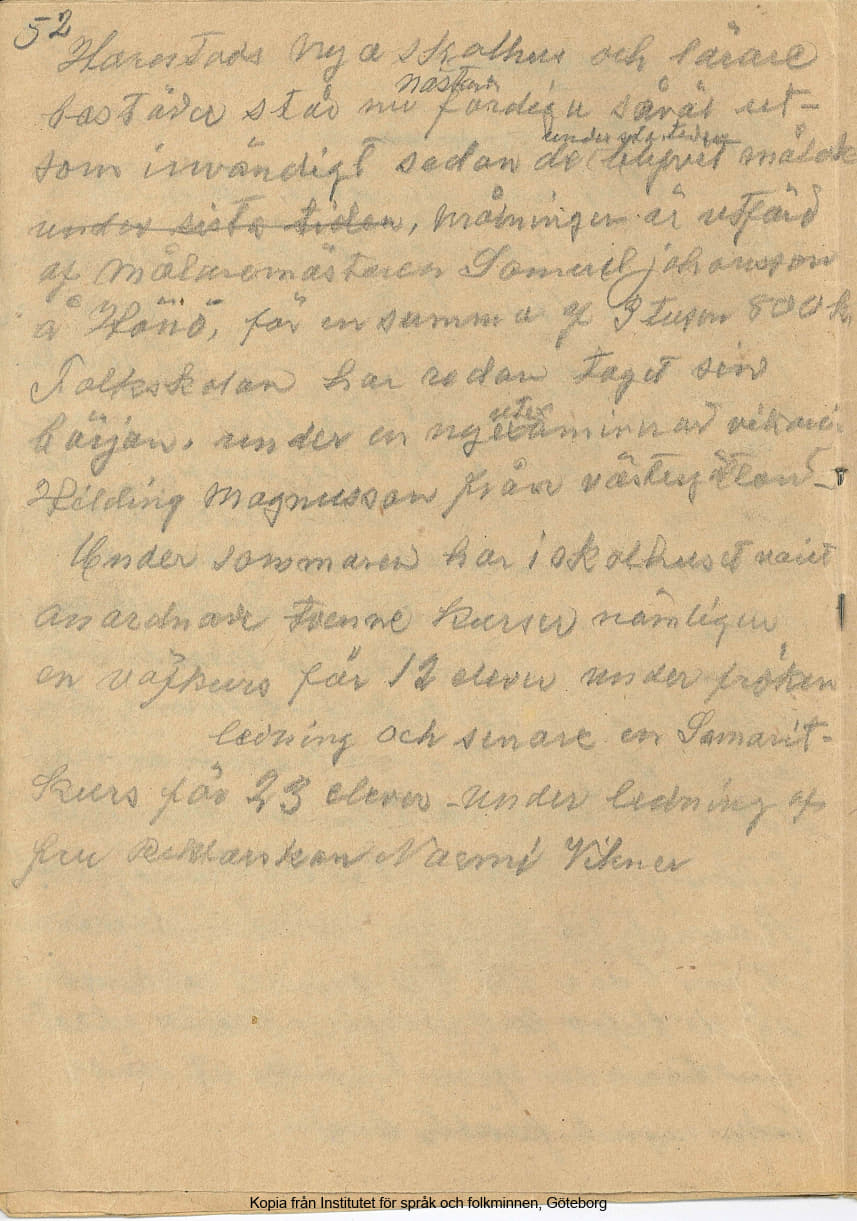 52
Harestads nya skolhus och lärare
bostäder står nu nästan färdiga såväl ut-
som invändigt sedan de under sista tiden blifvit målade
under sista tiden, målningen är utförd
af Målaremästaren Samuel johansson
å Hönö, för en summa af 3 tusen 800 k
Folkskolan har redan taget sin
början, under en ny utexaminerad vikarie
Hilding Magnusson från västergötland
Under sommaren har i skolhuset varit
anordnade tvenne kurser nämligen
en väfkurs för 12 elever under fröken
ledning och senare en Samarit-
kurs för 23 elever under ledning af
fru Naemi Vikner
Kopia från Institutet för språk och folkminnen, Göteborg